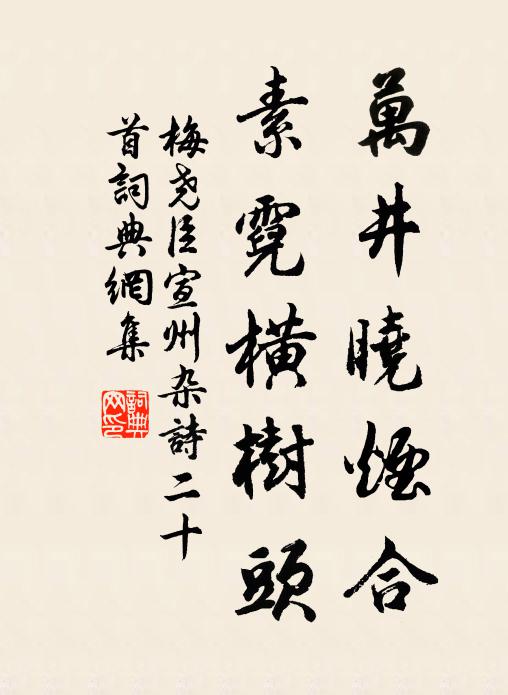 萬井曉煙合
素霓橫樹頭
梅尧臣宣州杂詩二十
首詞典網集
詞典
网印